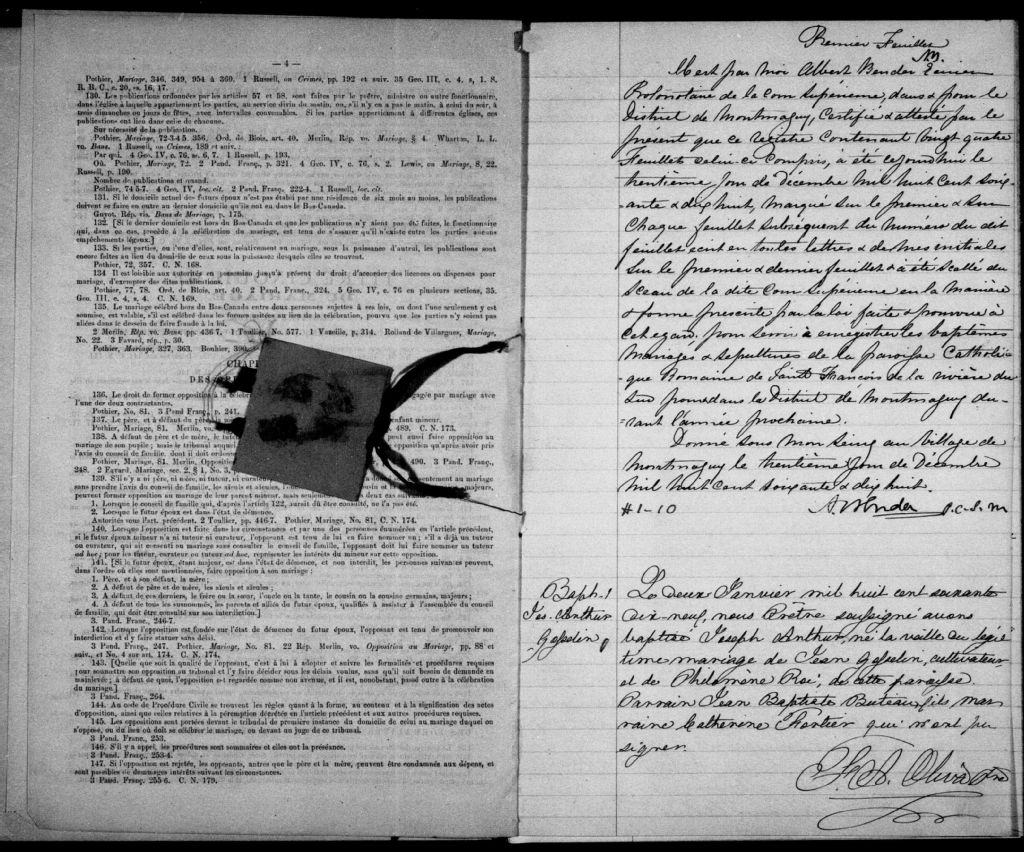 — 4 —
Pothier, Mariage, 346, 349, 954 à 360. 1 Russell, on Crimes, pp. 192 et suiv. 35 Geo. III, c. 4, s. 1. S.
R. B. C., c. 20, ss. 16, 17.
130. Les publications ordonnées par les articles 57 et 58, sont faites par le prêtre, ministre ou autre fonctionnaire,
dans l'église à laquelle appartiennent les parties, au service divin du matin, ou, s'il n'y en a pas le matin, à celui du soir, à
trois dimanches ou jours de fêtes, avec intervalles convenables. Si les parties appartiennent à différentes églises, ces
publications ont lieu dans celle de chacune.
Sur nécessité de la publication.
Pothier, Mariage, 72-3-4-5, 356. Ord. de Blois, art. 40. Merlin, Rép. vo. Mariage, § 4. Wharton, L. L.
vo. Bans. 1 Russell, on Crimes, 189 et suiv.:
Par qui. 4 Geo. IV, c. 76, ss. 6, 7. 1 Russell, p. 193.
Où. Pothier, Mariage, 72. 2 Pand. Franç., p. 321. 4 Geo. IV, c. 76, s. 2. Lewis, on Mariage, 8, 22.
Russell, p. 190.
Nombre de publications et quand.
Pothier, 74-5-7. 4 Geo. IV, loc. cit. 2 Pand. Franç. 222-4. 1 Russell, loc. cit.
131. Si le domicile actuel des futurs époux n'est pas établi par une résidence de six mois au moins, les publications
doivent se faire en outre au dernier domicile qu'ils ont eu dans le Bas-Canada.
Guyot, Rép. vis. Bans de Mariage, p. 175.
132. [Si le dernier domicile est hors du Bas-Canada et que les publications n'y aient pas été faites, le fonctionnaire
qui, dans ce cas, procède à la célébration du mariage, est tenu de s'assurer qu'il n'existe entre les parties aucuns
empêchements légaux.]
133. Si les parties, ou l'une d'elles, sont, relativement au mariage, sous la puissance d'autrui, les publications sont
encore faites au lieu du domicile de ceux sous la puissance desquels elles se trouvent.
Pothier, 72, 357. C. N. 168.
134 Il est loisible aux autorités en possession jusqu'à présent du droit d'accorder des licences ou dispenses pour
mariage, d'exempter des dites publications.
Pothier, 77, 78. Ord. de Blois, art. 40. 2 Pand. Franç., 324. 5 Geo. IV, c. 76 en plusieurs sections, 35.
Geo. III. c. 4, s. 4. C. N. 169.
135. Le mariage célébré hors du Bas-Canada entre deux personnes sujettes à ses lois, ou dont l'une seulement y est
soumise, est valable, s'il est célébré dans les formes usitées au lieu de la célébration, pourvu que les parties n'y soient pas
allées dans le dessein de faire fraude à la loi.
2 Merlin, Rép. vo. Bans, pp. 436-7. 1 Toullier, No. 577. 1 Vazeille, p. 314. Rolland de Villargues, Mariage,
No. 22. 3 Favard, rép., p. 30.
Pothier, Mariage, 327, 363. Bouhier, 390
CHAP
DES
136. Le droit de former opposition à la célébr gagée par mariage avec
l'une des deux contractantes.
Pothier, No. 81. 3 Pand Franç., p. 241.
137. Le père, et à défaut du père enfant mineur.
Pothier, Mariage, 81. Merlin, vo. 489. C. N. 173.
138. A défaut de père et de mère, le tut peut aussi faire opposition au
mariage de son pupille; mais le tribunal auquel opposition qu'après avoir pris
l'avis du conseil de famille, dont il doit ordonner
Pothier, Mariage, 81. Merlin, Opposition 490. 3 Pand. Franç.,
248. 2 Favard, Mariage, sec. 2, § 1, No. 3,
139. S'il n'y a ni père, ni mère, ni tuteur, ni curateur au mariage
sans prendre l'avis du conseil de famille, les aïeuls et aïeules, majeurs,
peuvent former opposition au mariage de leur parent mineur, mais seulement deux cas suivants
1. Lorsque le conseil de famille qui, d'après l'article 122, aurait dû être consulté, ne l'a pas été.
2. Lorsque le futur époux est dans l'état de démence.
Autorités sous l'art. précédent. 2 Toullier, pp. 446-7. Pothier, Mariage, No. 81, C. N. 174.
140. Lorsque l'opposition est faite dans les circonstances et par une des personnes énumérées en l'article précédent,
si le futur époux mineur n'a ni tuteur ni curateur, l'opposant est tenu de lui en faire nommer un; s'il a déjà un tuteur
ou curateur, qui ait consenti au mariage sans consulter le conseil de famille, l'opposant doit lui faire nommer un tuteur
ad hoc; pour les tuteur, curateur ou tuteur ad hoc, représenter les intérêts du mineur sur cette opposition.
141. [Si le futur époux, étant majeur, est dans l'état de démence, et non interdit, les personnes suivantes peuvent,
dans l'ordre où elles sont mentionnées, faire opposition à son mariage :
1. Père, et à son défaut, la mère ;
2. A défaut de père et de mère, les aïeuls et aïeules ;
3. A défaut de ces derniers, le frère ou la sœur, l'oncle ou la tante, le cousin ou la cousine germains, majeurs ;
4. A défaut de tous les susnommés, les parents et alliés du futur époux, qualifiés à assister à l'assemblée du conseil
de famille, qui doit être consulté sur son interdiction.]
3. Pand. Franç., 246-7.
142. Lorsque l'opposition est fondée sur l'état de démence du futur époux, l'opposant est tenu de promouvoir son
interdiction et d'y faire statuer sans délai.
3 Pand. Franç., 247. Pothier, Mariage, No. 81. 22 Rép. Merlin, vo. Opposition au Mariage, pp. 88 et
suiv., et No. 4 sur art. 174. C. N. 174.
143. [Quelle que soit la qualité de l'opposant, c'est à lui à adopter et suivre les formalités et procédures requises
pour soumettre son opposition au tribunal et l'y faire décider sous les délais voulus, sans qu'il soit besoin de demande en
mainlevée ; à défaut de quoi, l'opposition est regardée comme non avenue, et il est, nonobstant, passé outre à la célébration
du mariage.]
3 Pand. Franç., 264.
144. Au code de Procédure Civile se trouvent les règles quant à la forme, au contenu et à la signification des actes
d'opposition, ainsi que celles relatives à la péremption décrétée en l'article précédent et aux autres procédures requises.
145. Les oppositions sont portées devant le tribunal de première instance du domicile de celui au mariage duquel on
s'oppose, ou du lieu où doit se célébrer le mariage, ou devant un juge de ce tribunal.
3 Pand. Franç., 253.
146. S'il y a appel, les procédures sont sommaires et elles ont la préséance.
3 Pand. Franç., 253-4.
147. Si l'opposition est rejetée, les opposants, autres que le père et la mère, peuvent être condamnés aux dépens, et
sont passibles de dommages intérêts suivant les circonstances.
3 Pand. Franç. 255-6. C. N. 179.
Premier Feuillet
Il est par Moi Albert Bender Ecuier
Protonotaire de la Cour Supérieure, dans & pour le
District de Montmagny, Certifié & attesté par le
présent que ce régistre contenant Vingt quatre
Feuillets celui ci Compris, a été ce jourd'hui le
trentième Jour de Décembre Mil huit Cent Soix
ante & dix huit, marqué sur le premier & sur
Chaque feuillet subséquent du Numéro du dit
feuillet écrit en toutes lettres & de Mes initiales
sur le premier & dernier feuillet & a été scellé du
Sceau de la dite Cour Supérieure en la Manière
& forme prescrite par la loi faite & pourvue à
cet égard. pour servir à enrégistrer les baptêmes
Mariages & sepultures de la paroisse Catholi-
que Romaine de Saint François de la rivière du
Sud pour dans le District de Montmagny du-
rant l'année prochaine.
Donné sous Mon Seing au Village de
Montmagny le trentième Jour de Décembre
Mil huit Cent soixante & dix huit.
#1-10 A. Bender P.C.S.M
Bapt. 1
Jos. Arthur
Gosselin
Le deux Janvier mil huit cent soixante
dix-neuf, nous Prêtre soussigné avons
baptisé Joseph Arthur né la veille du légi-
time mariage de Jean Gosselin, cultivateur
et de Philomène Roi, de cette paroisse.
Parrain Jean Baptiste Buteau, fils mar
raine Catherine Fortier qui n'ont pu
signer.
Olivâ Ptre